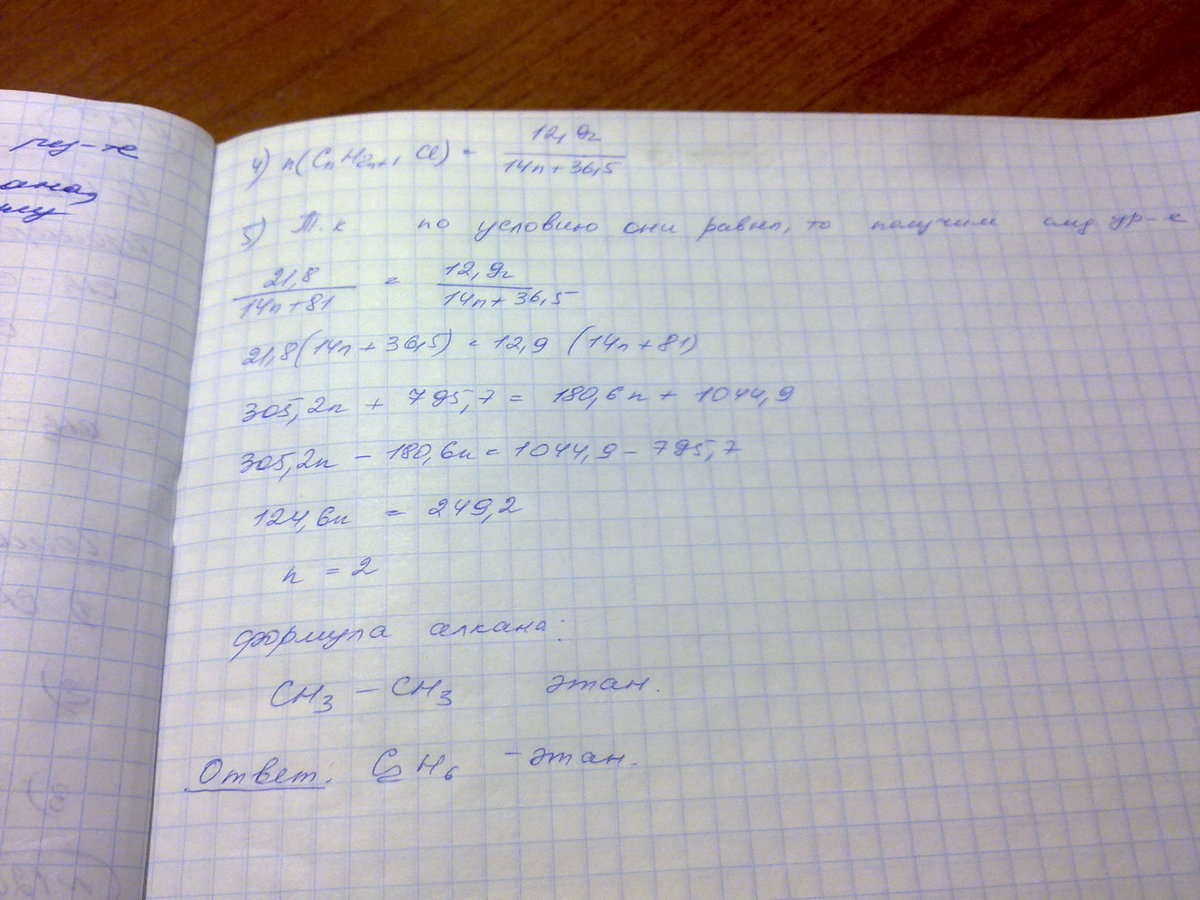 рез-те
4) n(CnH2n+1 Cl) = 12,9г / 14n+36,5
5) Т.к по условию они равны, то получим след ур-е
21,8 / 14n+81 = 12,9г / 14n+36,5
21,8(14n+36,5) = 12,9 (14n+81)
305,2n + 795,7 = 180,6n + 1044,9
305,2n - 180,6n = 1044,9 - 795,7
124,6n = 249,2
n = 2
формула алкана:
CH3 - CH3 этан.
Ответ: C2H6 - этан.